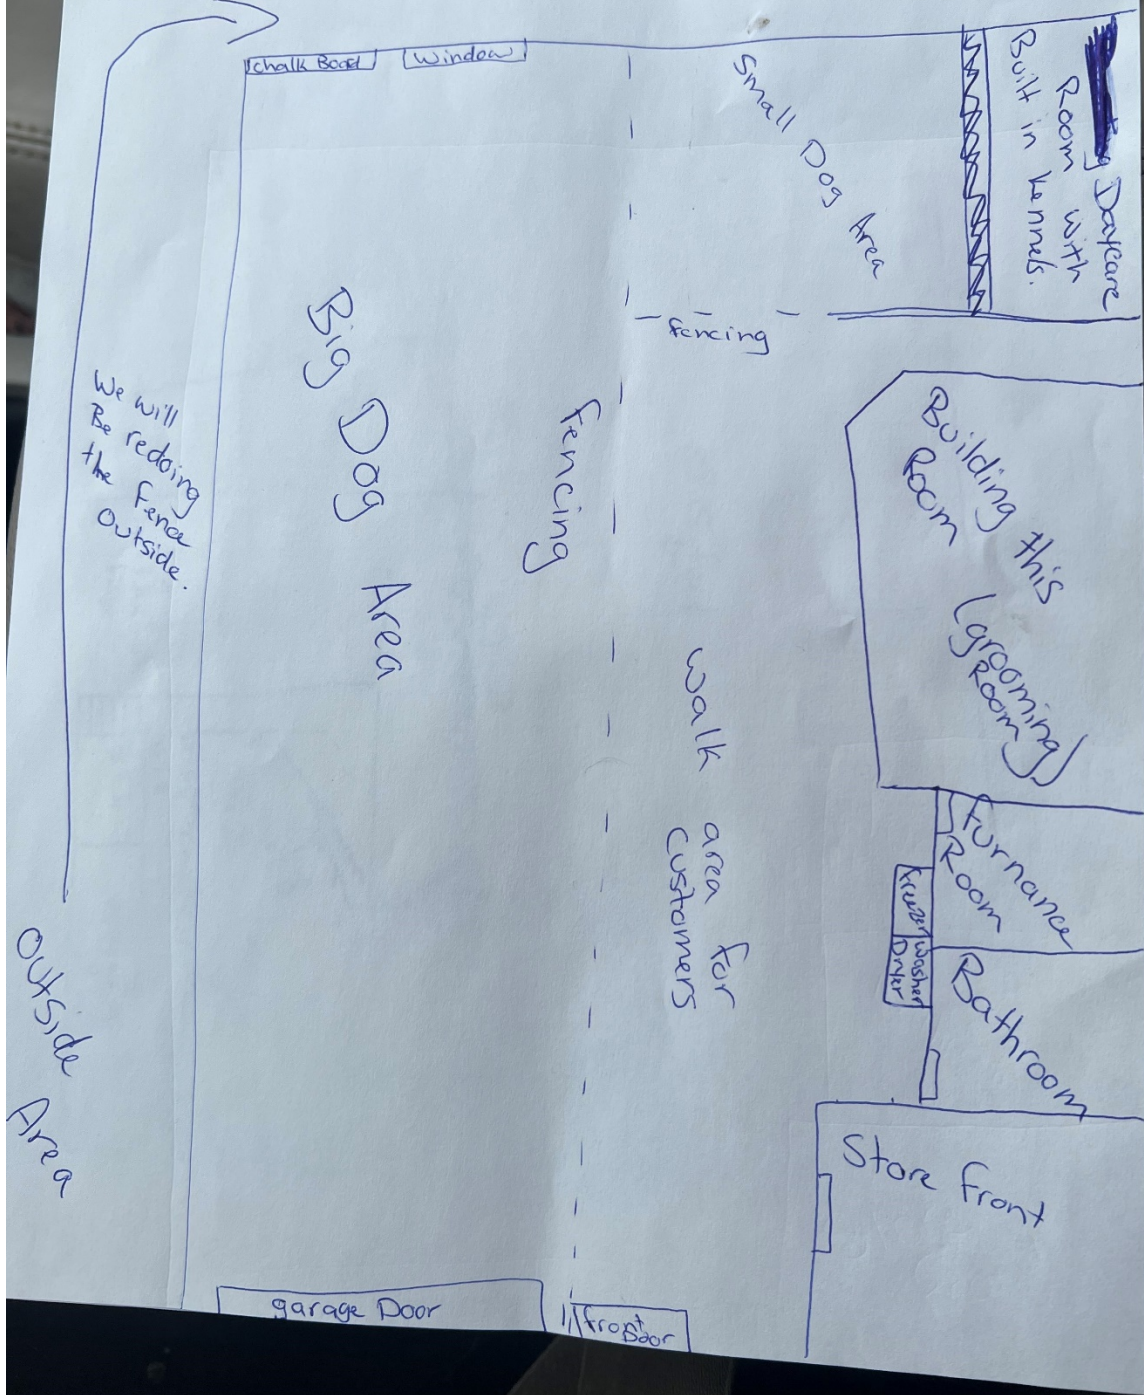 Chalk Board
Window
Small Dog Area
Daycare
Room with
Built in kennels.
fencing
Big Dog Area
Fencing
We will
Be redoing
the Fence
Outside.
Building this
Room
(grooming
Room)
Walk area for
Customers
furnance
Room
freezer
Washer
Dryer
Bathroom
Outside Area
Store Front
garage Door
front
Door